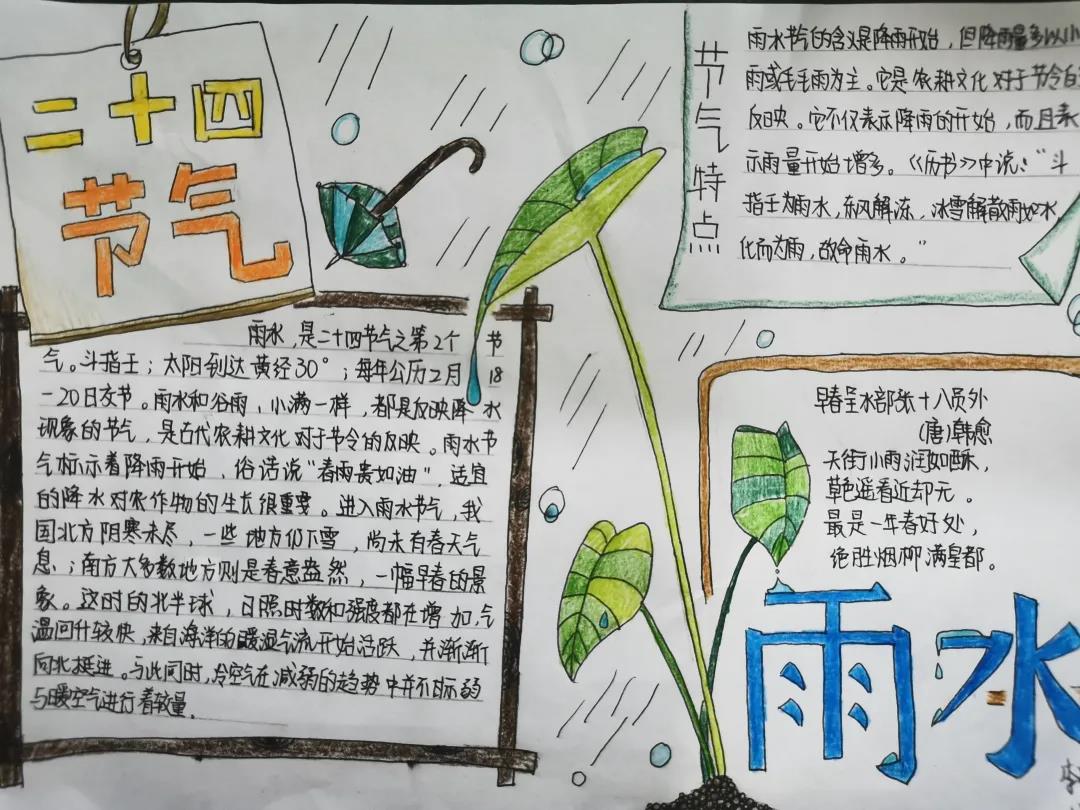 二十四
节气
雨水,是二十四节气之第2个节
气。斗指壬;太阳到达黄经30°;每年公历2月18
-20日交节。雨水和谷雨、小满一样,都是反映降水
现象的节气,是古代农耕文化对于节令的反映。雨水节
气标示着降雨开始、俗话说“春雨贵如油”,适宜
的降水对农作物的生长很重要。进入雨水节气,我
国北方阴寒未尽,一些地方仍下雪,尚未有春天气
息;南方大多数地方则是春意盎然,一幅早春的景
象。这时的北半球,日照时数和强度都在增加,气
温回升较快,来自海洋的暖湿气流开始活跃,并渐渐
向北挺进。与此同时,冷空气在减弱的趋势中并不甘示弱
与暖空气进行着较量.
节气特点
雨水节气的含义是降雨开始,但降雨量多以小
雨或毛毛雨为主。它是农耕文化对于节令的
反映。它不仅表示降雨的开始,而且表
示雨量开始增多。《历书》中说:“斗
指壬为雨水,东风解冻、冰雪解散而如水,
化而为雨,故命雨水。”
早春呈水部张十八员外
(唐)韩愈
天街小雨润如酥,
草色遥看近却无。
最是一年春好处,
绝胜烟柳满皇都。
雨水